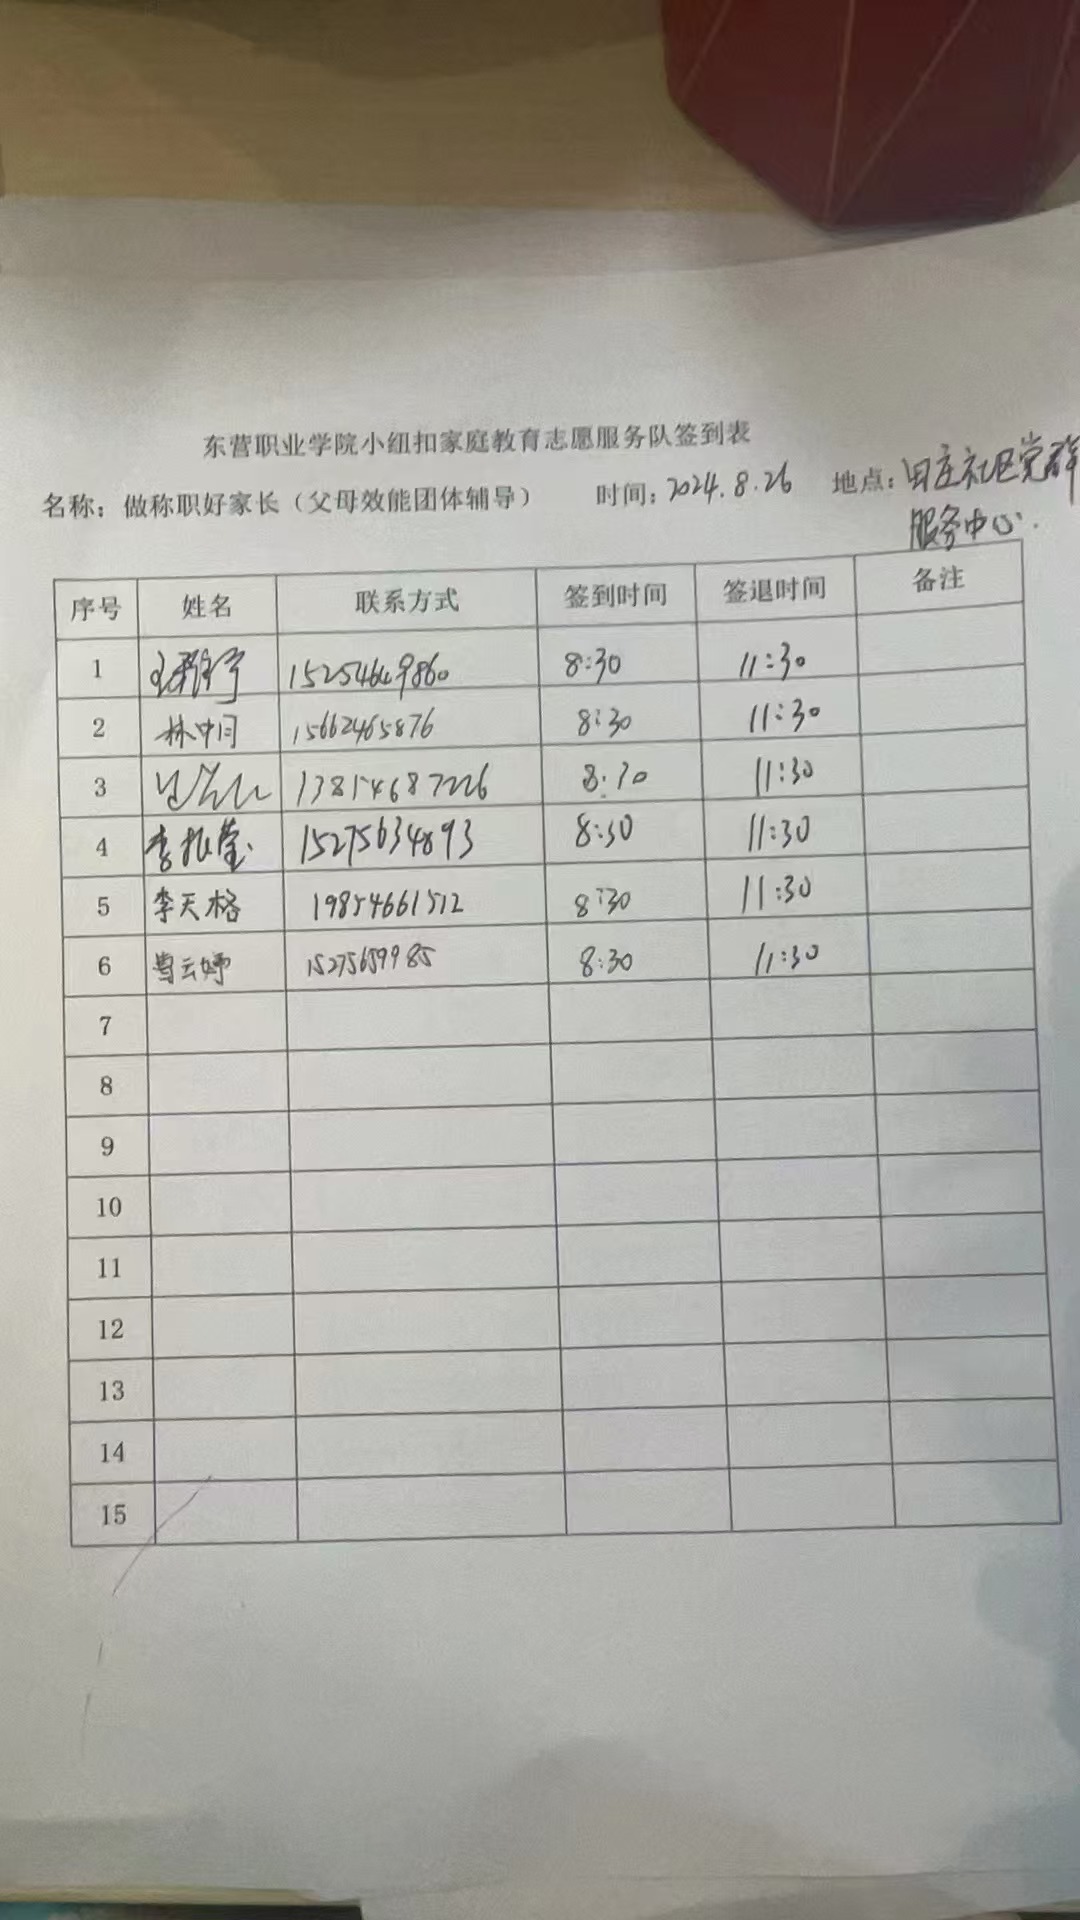 东营职业学院小纽扣家庭教育志愿服务队签到表
名称：做称职好家长（父母效能团体辅导） 时间：2024.8.26 地点：田庄社区党群
服务中心.
序号 姓名 联系方式 签到时间 签退时间 备注
1 15254649860 8:30 11:30
2 林中月 15662465876 8:30 11:30
3 13854687226 8:30 11:30
4 李振莹 15275634893 8:30 11:30
5 李天格 19854661512 8:30 11:30
6 曹云婷 15275659985 8:30 11:30
7
8
9
10
11
12
13
14
15